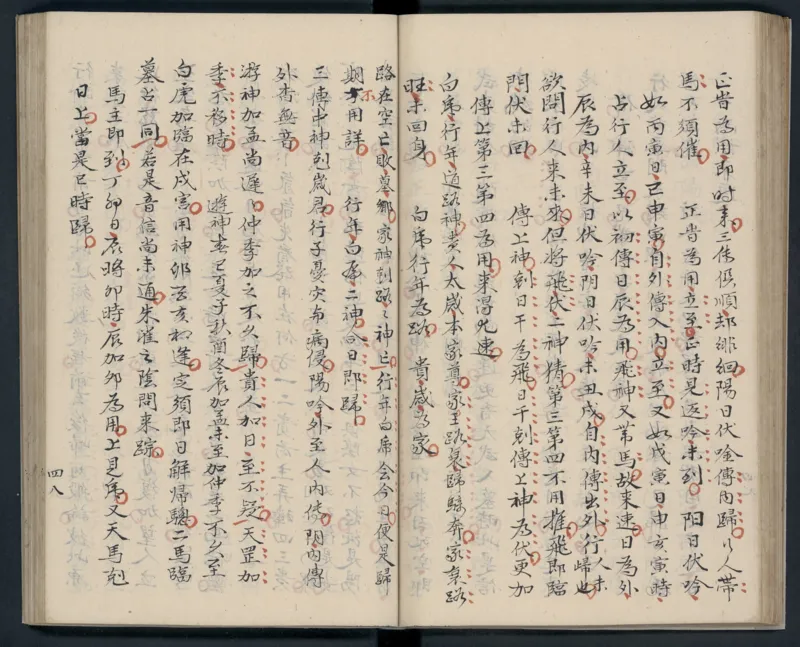 正皆為用即时来三传俱順却徘徊陽日伏唫傳内歸以人帶
馬不須催　正皆為用立至正時見返吟未到　阳日伏吟
如丙寅日己申寅自外傳入内立至又如戊寅日申亥寅時
占行人立至以初傳日辰為用飛神又帶馬故来速日為外
辰為内辛未日伏吟阴日伏吟未丑戌自内傳出外行人未歸也
欲問行人来未來但將飛伏二神情第三第四不用推飛即臨
門伏未回　傳上神剋日干為飛日干剋傳上神為伏更加
傳上第三第四為用来淂尤速
白虎行年道路神貴人太歲本家尊家王路衰歸騎奔家衰路
旺未回身　白虎行年為路　貴歲為家
路在空亡敗墓鄉家神剋路路神亡行年白虎会今日便是歸
期不用詳　行年白虎二神合日即歸
三傳中神剋歲君行子憂灾布病侵陽吟外至人内傳阴内傳
外杳無音
游神加孟尚遲遲仲季加之不久歸貴人加日至不疑天罡加
季不移時　遊神春丑夏子秋酉冬辰加孟未至加仲季不久至
白虎加臨在戌寅用神卯丑亥相逢定須即日解帰驄二馬臨
墓占一同若是音信尚未通朱雀之陰問来踪
馬主即到丁卯日辰時卯時辰加卯為用上見虎又天馬剋
日上當是巳時歸
四八